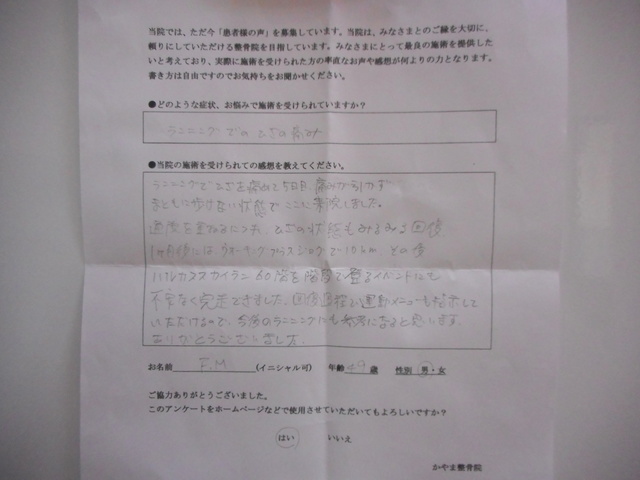 当院では、ただ今「患者様の声」を募集しています。当院は、みなさまとのご縁を大切に、
頼りにしていただける整骨院を目指しています。みなさまにとって最良の施術を提供した
いと考えており、実際に施術を受けられた方の率直なお声や感想が何よりの力となります。
書き方は自由ですのでお気持ちをお聞かせください。
●どのような症状、お悩みで施術を受けられていますか？
ランニングでのひざの痛み
●当院の施術を受けられての感想を教えてください。
ランニングでひざを痛めて5日目、痛みが引かず
まともに歩けない状態でここに来院しました。
通院を重ねるにつれ、ひざの状態もみるみる回復
1ヶ月後にはウォーキングプラスジョグで10km その後
ハルカススカイラン60階を階段で登るイベントにも
不安なく完走できました。回復過程で運動メニューも指示して
いただけるので、今後のランニングにも参考になると思います。
ありがとうございました。
お名前 F.M (イニシャル可) 年齢 49 歳 性別 男・女
ご協力ありがとうございました。
このアンケートをホームページなどで使用させていただいてもよろしいですか？
はい いいえ
かやま整骨院